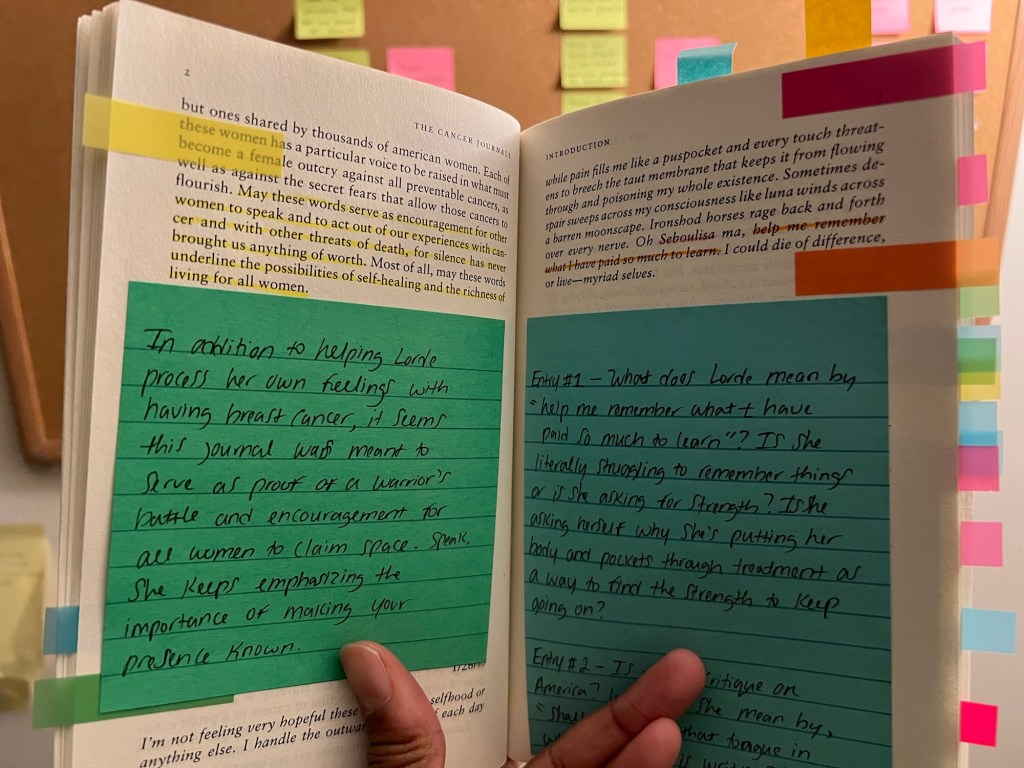 2
THE CANCER JOURNALS
but ones shared by thousands of american women. Each of
these women has a particular voice to be raised in what must
become a female outcry against all preventable cancers, as
well as against the secret fears that allow those cancers to
flourish. May these words serve as encouragement for other
women to speak and to act out of our experiences with can-
cer and with other threats of death, for silence has never
brought us anything of worth. Most of all, may these words
underline the possibilities of self-healing and the richness of
living for all women.
In addition to helping Lorde
process her own feelings with
having breast cancer, it seems
this journal was meant to
serve as proof of a warrior's
battle and encouragement for
all women to claim space. Speak.
She keeps emphasizing the
importance of making your
presence known.
I'm not feeling very hopeful these selfhood or
anything else. I handle the outwar of each day
INTRODUCTION
while pain fills me like a puspocket and every touch threat-
ens to breech the taut membrane that keeps it from flowing
through and poisoning my whole existence. Sometimes de-
spair sweeps across my consciousness like luna winds across
a barren moonscape. Ironshod horses rage back and forth
over every nerve. Oh Seboulisa ma, help me remember
what I have paid so much to learn. I could die of difference,
or live—myriad selves.
Entry #1 – What does Lorde mean by
"help me remember what I have
paid so much to learn"? Is she
literally struggling to remember things
or is she asking for strength? Is she
asking herself why she's putting her
body and pockets through treatment as
a way to find the strength to keep
going on?
Entry #2 – Is critique on
America? she mean by,
"Shall that tongue in